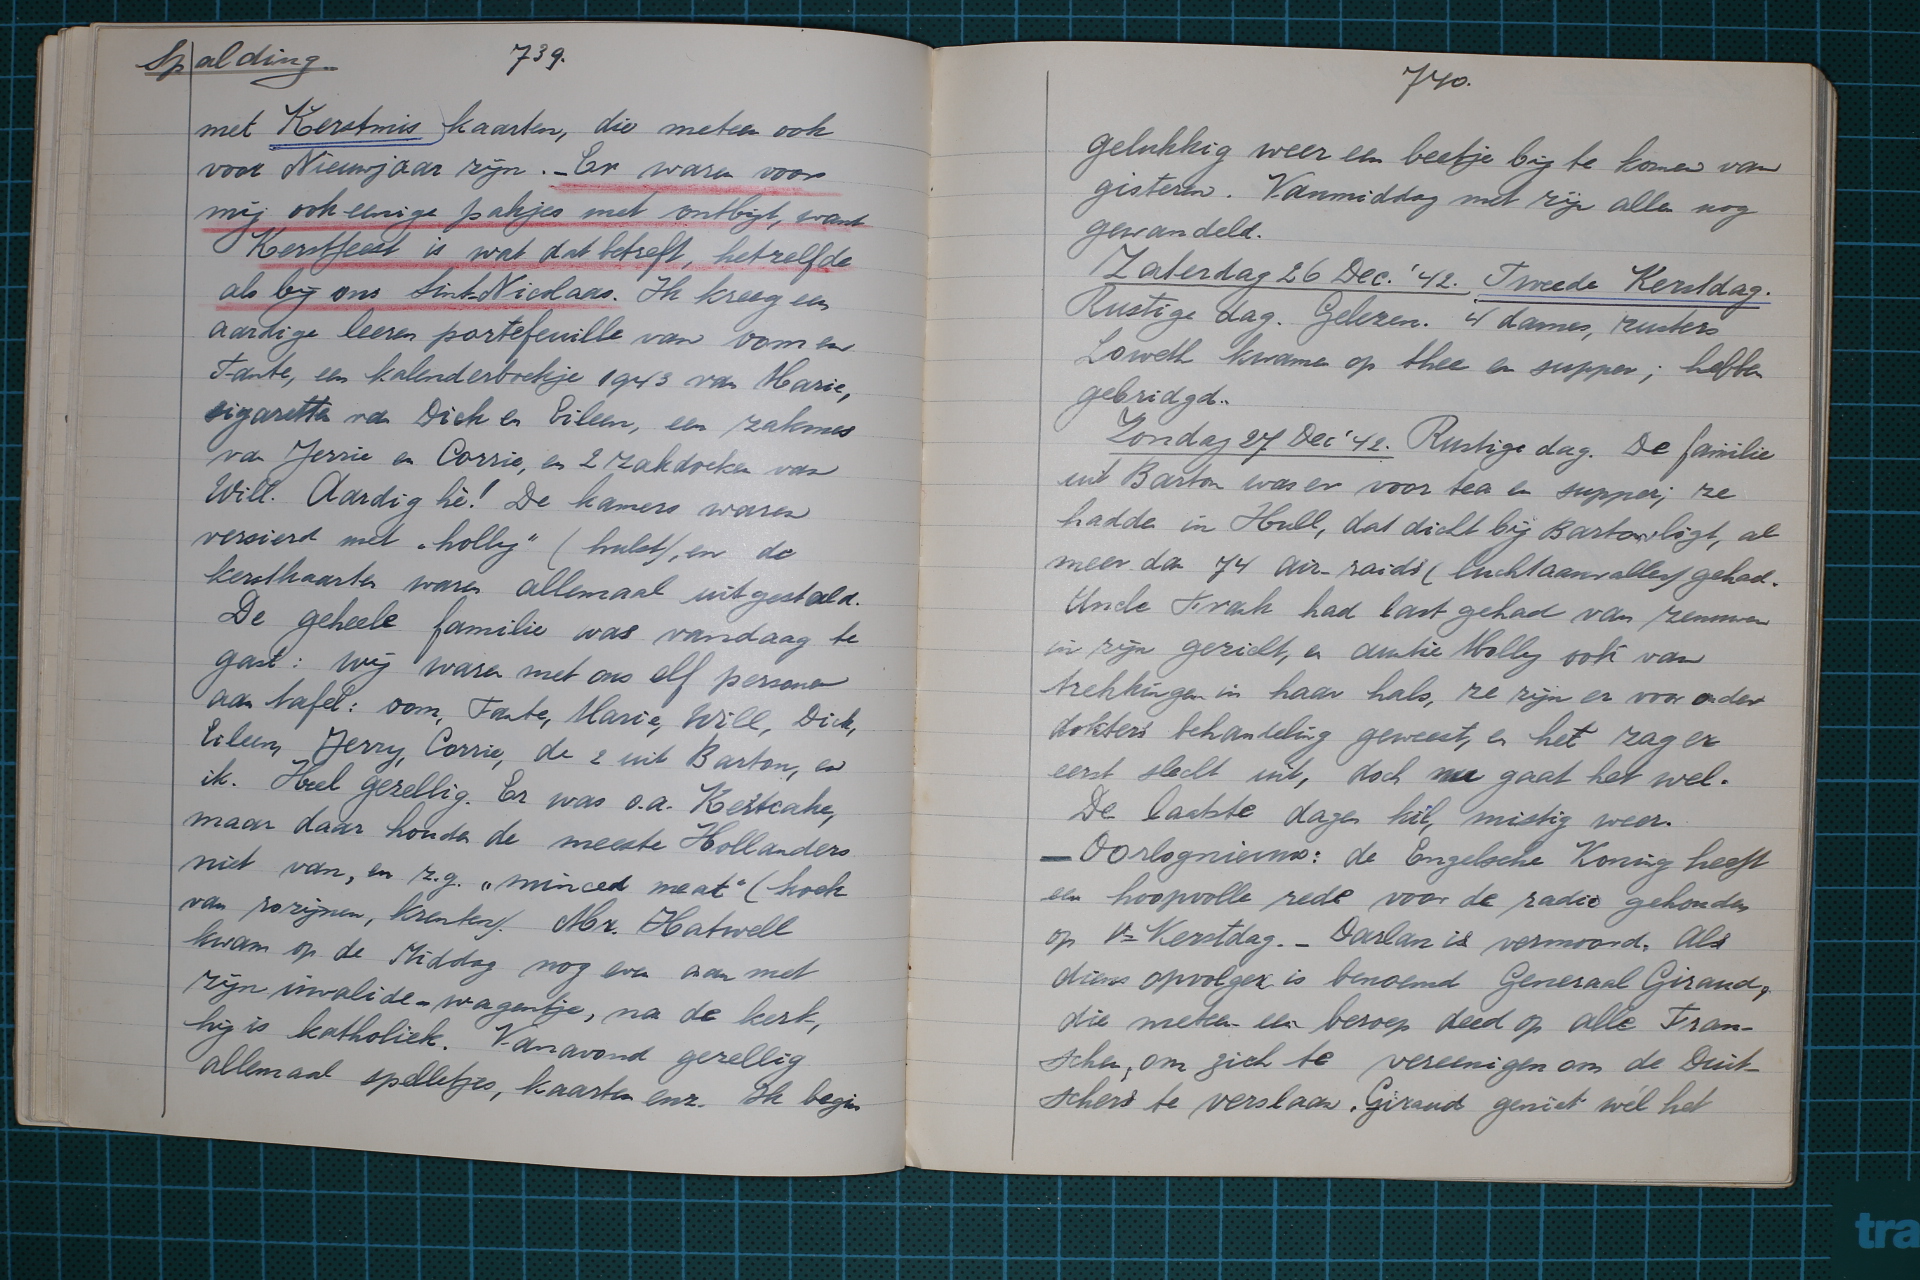 Spalding. 739.
met Kerstmis kaarten, die meteen ook
voor Nieuwjaar zijn. - Er waren voor
mij ook eenige pakjes met ontbijt, want
Kerstfeest is wat dat betreft, hetzelfde
als bij ons Sint-Nicolaas. Ik kreeg een
aardige leeren portefeuille van oom en
Tante, een kalenderboekje 1943 van Marie,
sigaretten van Dick en Eileen, een zakmes
van Jerrie en Corrie, en 2 zakdoeken van
Will. Aardig hè! De kamers waren
versierd met „holly" (hulst), en de
kerstkaarten waren allemaal uitgestald.
De geheele familie was vandaag te
gast: wij waren met ons elf personen
aan tafel: oom, Tante, Marie, Will, Dick,
Eileen, Jerry, Corrie, de 2 uit Barton, en
ik. Heel gezellig. Er was o.a. Kerstcake,
maar daar houden de meeste Hollanders
niet van, en z.g. „minced meat" (koek
van rozijnen, krenten). Mr. Hatwell
kwam op de Middag nog even aan met
zijn invalide-wagentje, na de kerk,
hij is katholiek. Vanavond gezellig
allemaal spelletjes, kaarten enz. Ik begin
740.
gelukkig weer een beetje bij te komen van
gisteren. Vanmiddag met zijn allen nog
gewandeld.
Zaterdag 26 Dec. '42. Tweede Kerstdag.
Rustige dag. Gelezen. 4 dames, zusters
Loweth kwamen op thee en supper; hebben
gebridgd.
Zondag 27 Dec '42. Rustige dag. De familie
uit Barton was er voor tea en supper; ze
hadden in Hull, dat dicht bij Barton ligt, al
meer dan 74 air-raids (luchtaanvallen) gehad.
Uncle Frank had last gehad van zenuwen
in zijn gezicht, en auntie Molly ook van
trekkingen in haar hals, ze zijn er voor onder
dokters behandeling geweest, en het zag er
eerst slecht uit, doch nu gaat het wel.
De laatste dagen kil, mistig weer.
- Oorlognieuws: de Engelsche Koning heeft
een hoopvolle rede voor de radio gehouden
op 1e Kerstdag. - Darlan is vermoord. Als
diens opvolger is benoemd Generaal Giraud,
die meteen een beroep deed op alle Fran-
schen, om zich te vereenigen om de Duit-
schers te verslaan. Giraud geniet wél het
tra